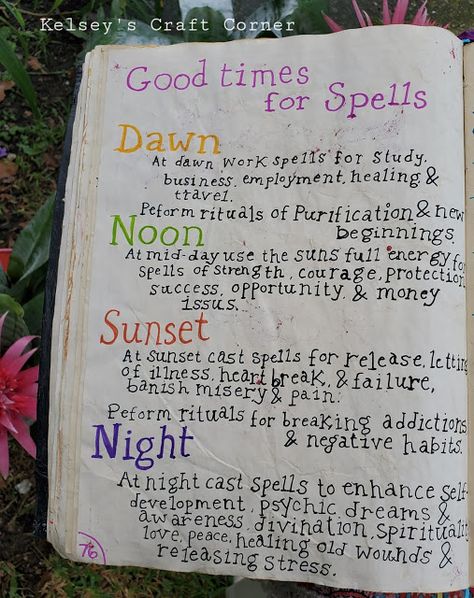 Kelsey's Craft Corner
Good times
for Spells
Dawn
At dawn work spells for study,
business, employment, healing, &
travel.
Peform rituals of Purification & new
beginnings.
Noon
At mid-day use the suns full energy for
spells of strength, courage, protection,
success, opportunity, & money
issus.
Sunset
At sunset cast spells for release, letting
of illness, heart break, & failure,
banish misery & pain.
Peform rituals for breaking addictions
& negative habits.
Night
At night cast spells to enhance self
development, psychic dreams &
awareness, divination, spirituali
love, peace, healing old wounds &
releasing stress.
76